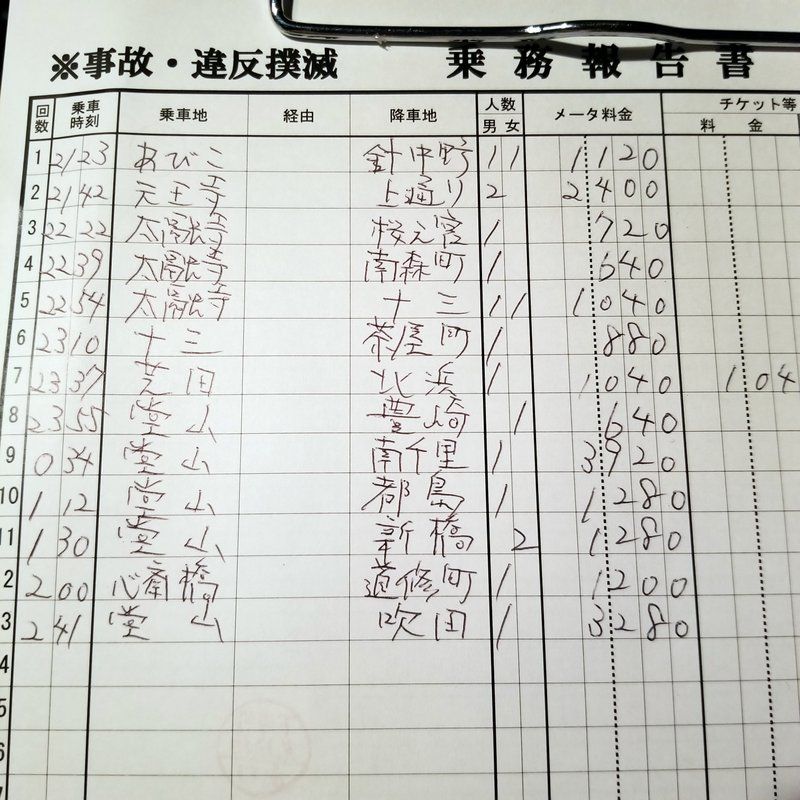 ※事故・違反撲滅 乗務報告書
回数 乗車時刻 乗車地 経由 降車地 人数 男 女 メータ料金 チケット等 料金
1 21 23 あびこ 針中野 1 1 1120
2 21 42 天王寺 上通り 2 2400
3 22 22 太融寺 桜之宮 1 720
4 22 39 太融寺 南森町 1 640
5 22 54 太融寺 十三 1 1 1040
6 23 10 十三 茶屋町 1 880
7 23 37 芝田 北浜 1 1040 104
8 23 55 堂山 豊崎 1 640
9 0 34 堂山 南千里 1 3920
10 1 12 堂山 都島 1 1280
11 1 30 堂山 新橋 2 1280
2 2 00 心斎橋 道修町 1 1200
3 2 41 堂山 吹田 1 3280
4
5
6